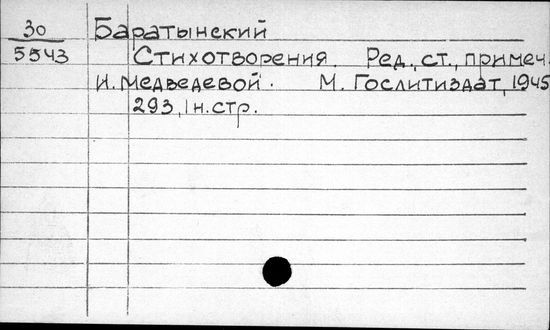 30 Баратынский
5543 Стихотворения. Ред., ст., примеч.
И. Медведевой. М. Гослитиздат, 1945
293, 1 н. стр.